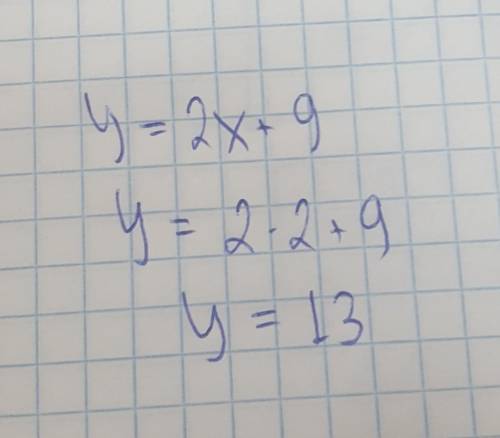 y = 2x + 9
y = 2 · 2 + 9
y = 13